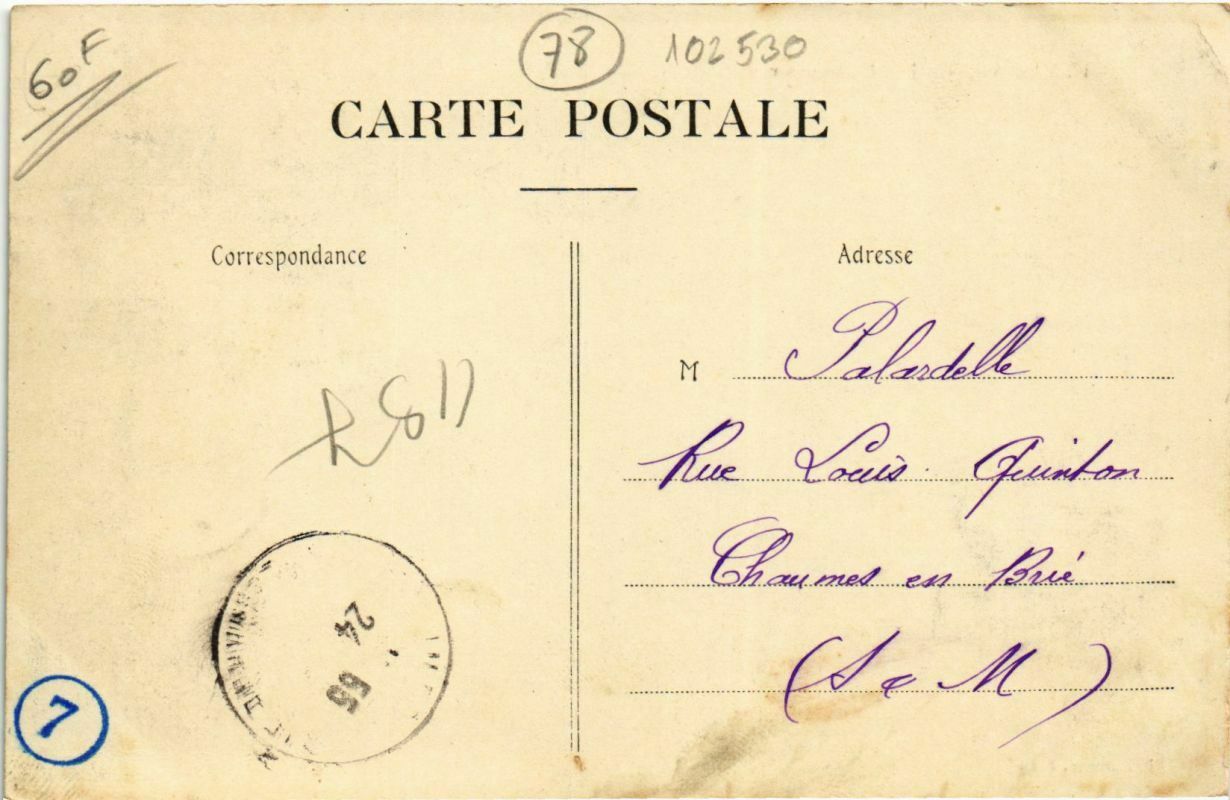 60F
78 102530
CARTE POSTALE
Correspondance
Adresse
M Palardelle
Rue Louis Quinton
Chaumes en Brié
(S & M)
1187
24
55
7